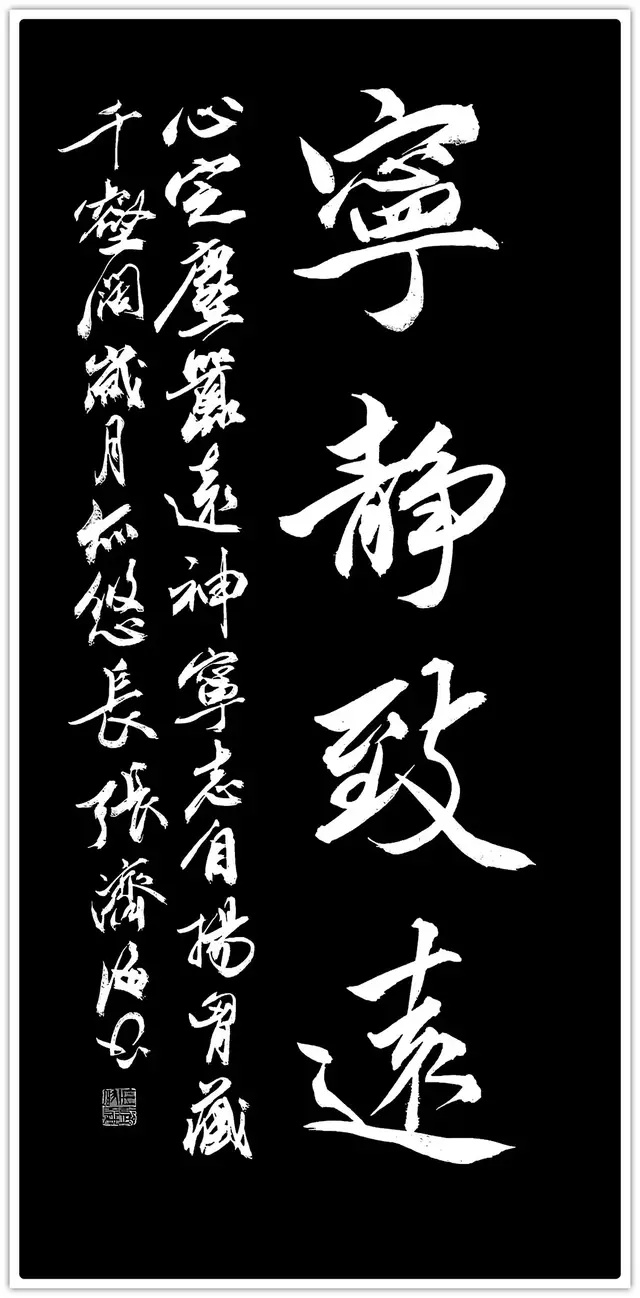 寧靜致遠
心定塵囂遠神寧志自揚胷藏
千壑闊歲月亦悠長張濟海書